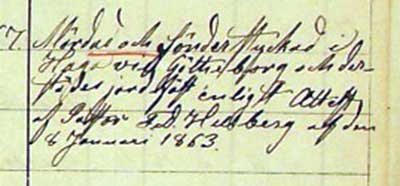 57. Mördad och sönderstyckad i
Haga vid Götheborg och der-
städes jordfäst enligt Attest
af Pastor F.d. Hedberg af den
8 Januari 1863.